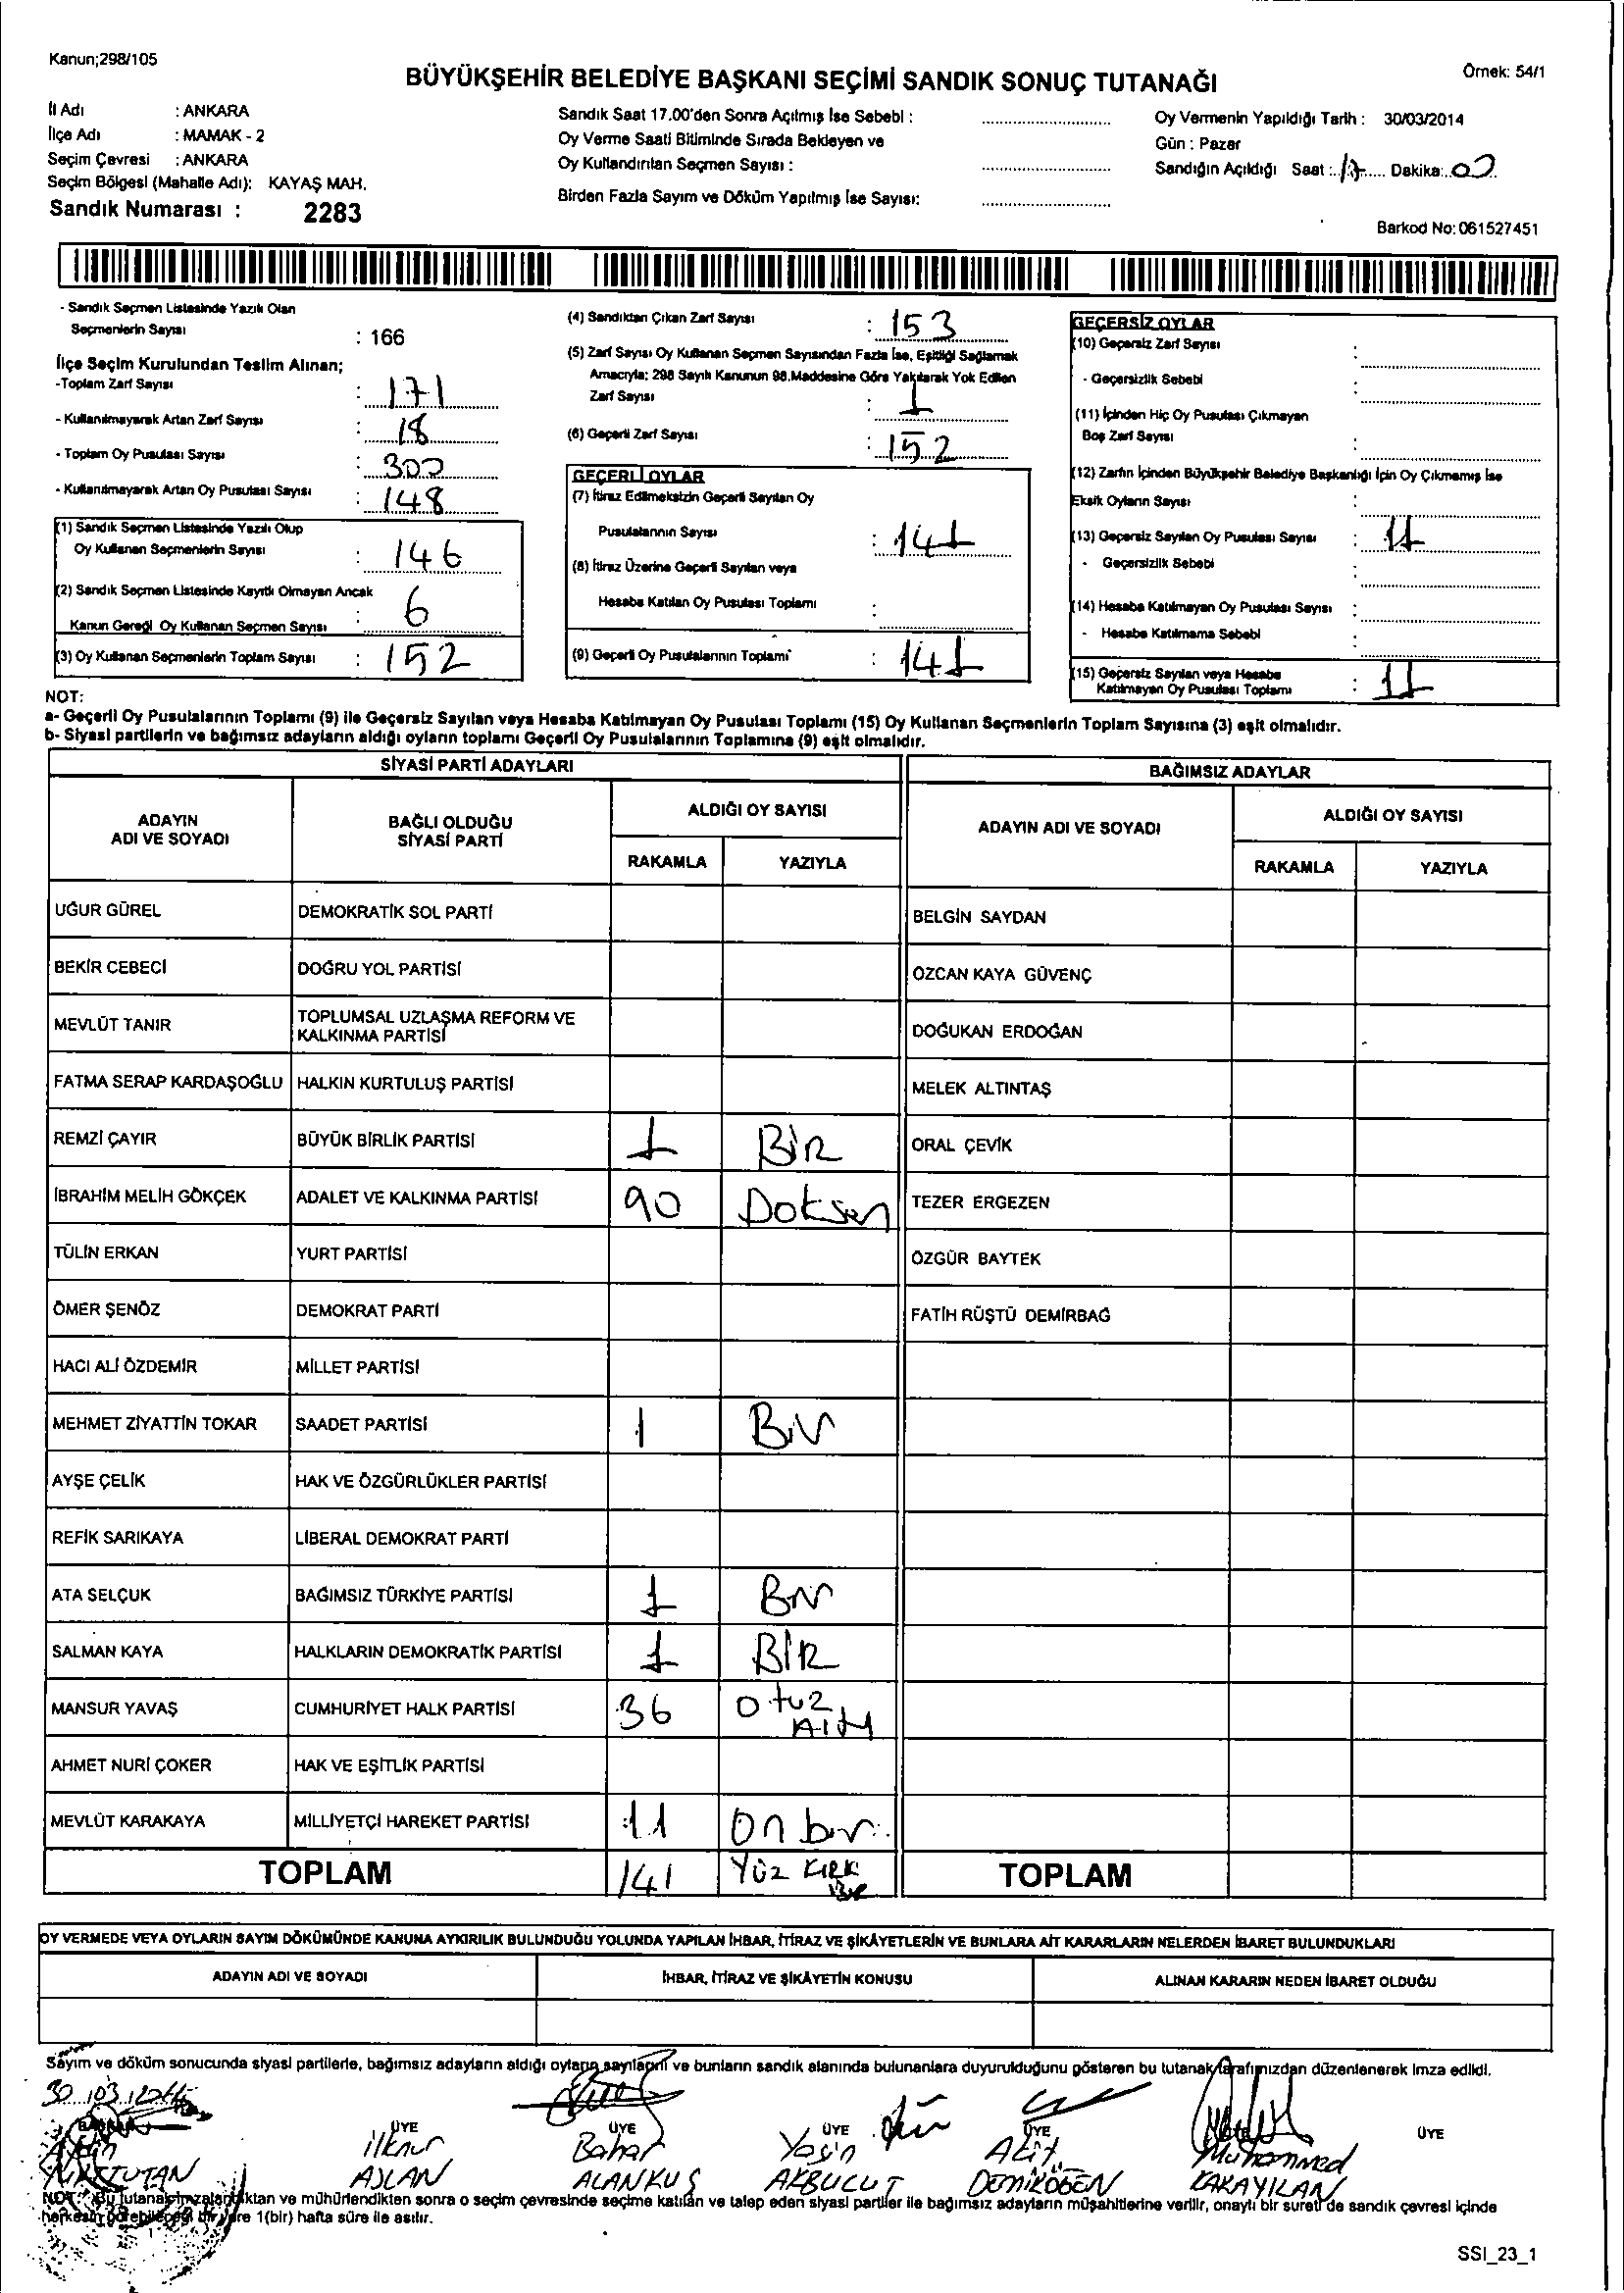 Kanun;298/105
BÜYÜKŞEHİR BELEDİYE BAŞKANI SEÇİMİ SANDIK SONUÇ TUTANAĞI
Örnek: 54/1
İl Adı : ANKARA
İlçe Adı : MAMAK - 2
Seçim Çevresi : ANKARA
Seçim Bölgesi (Mahalle Adı): KAYAŞ MAH.
Sandık Numarası : 2283
Sandık Saat 17.00'den Sonra Açılmış İse Sebebi :
Oy Verme Saati Bitiminde Sırada Bekleyen ve
Oy Kullandırılan Seçmen Sayısı :
Birden Fazla Sayım ve Döküm Yapılmış İse Sayısı:
Oy Vermenin Yapıldığı Tarih : 30/03/2014
Gün : Pazar
Sandığın Açıldığı Saat : 17 Dakika: 00
Barkod No: 061527451
- Sandık Seçmen Listesinde Yazılı Olan
Seçmenlerin Sayısı : 166
İlçe Seçim Kurulundan Teslim Alınan;
-Toplam Zarf Sayısı : 171
- Kullanılmayarak Artan Zarf Sayısı : 18
- Toplam Oy Pusulası Sayısı : 300
- Kullanılmayarak Artan Oy Pusulası Sayısı : 148
(1) Sandık Seçmen Listesinde Yazılı Olup
Oy Kullanan Seçmenlerin Sayısı : 146
(2) Sandık Seçmen Listesinde Kayıtlı Olmayan Ancak
Kanun Gereği Oy Kullanan Seçmen Sayısı : 6
(3) Oy Kullanan Seçmenlerin Toplam Sayısı : 152
(4) Sandıktan Çıkan Zarf Sayısı : 153
(5) Zarf Sayısı Oy Kullanan Seçmen Sayısından Fazla İse, Eşitliği Sağlamak
Amacıyla; 298 Sayılı Kanunun 98.Maddesine Göre Yakılarak Yok Edilen
Zarf Sayısı : 1
(6) Geçerli Zarf Sayısı : 152
GEÇERLİ OYLAR
(7) İtiraz Edilmeksizin Geçerli Sayılan Oy
Pusulalarının Sayısı : 141
(8) İtiraz Üzerine Geçerli Sayılan veya
Hesaba Katılan Oy Pusulası Toplamı :
(9) Geçerli Oy Pusulalarının Toplamı : 141
GEÇERSİZ OYLAR
(10) Geçersiz Zarf Sayısı :
- Geçersizlik Sebebi :
(11) İçinden Hiç Oy Pusulası Çıkmayan
Boş Zarf Sayısı :
(12) Zarfın İçinden Büyükşehir Belediye Başkanlığı İçin Oy Çıkmamış İse
Eksik Oyların Sayısı :
(13) Geçersiz Sayılan Oy Pusulası Sayısı : 11
- Geçersizlik Sebebi :
(14) Hesaba Katılmayan Oy Pusulası Sayısı :
- Hesaba Katılmama Sebebi :
(15) Geçersiz Sayılan veya Hesaba
Katılmayan Oy Pusulası Toplamı : 11
NOT:
a- Geçerli Oy Pusulalarının Toplamı (9) ile Geçersiz Sayılan veya Hesaba Katılmayan Oy Pusulası Toplamı (15) Oy Kullanan Seçmenlerin Toplam Sayısına (3) eşit olmalıdır.
b- Siyasi partilerin ve bağımsız adayların aldığı oyların toplamı Geçerli Oy Pusulalarının Toplamına (9) eşit olmalıdır.
SİYASİ PARTİ ADAYLARI
BAĞIMSIZ ADAYLAR
ADAYIN
ADI VE SOYADI
BAĞLI OLDUĞU
SİYASİ PARTİ
ALDIĞI OY SAYISI
RAKAMLA YAZIYLA
ADAYIN ADI VE SOYADI
ALDIĞI OY SAYISI
RAKAMLA YAZIYLA
UĞUR GÜREL DEMOKRATİK SOL PARTİ BELGİN SAYDAN
BEKİR CEBECİ DOĞRU YOL PARTİSİ OZCAN KAYA GÜVENÇ
MEVLÜT TANIR TOPLUMSAL UZLAŞMA REFORM VE
KALKINMA PARTİSİ DOĞUKAN ERDOĞAN
FATMA SERAP KARDAŞOĞLU HALKIN KURTULUŞ PARTİSİ MELEK ALTINTAŞ
REMZİ ÇAYIR BÜYÜK BİRLİK PARTİSİ 1 BİR ORAL ÇEVİK
İBRAHİM MELİH GÖKÇEK ADALET VE KALKINMA PARTİSİ 90 Doksan TEZER ERGEZEN
TÜLİN ERKAN YURT PARTİSİ ÖZGÜR BAYTEK
ÖMER ŞENÖZ DEMOKRAT PARTİ FATİH RÜŞTÜ DEMİRBAĞ
HACI ALİ ÖZDEMİR MİLLET PARTİSİ
MEHMET ZİYATTİN TOKAR SAADET PARTİSİ 1 Bir
AYŞE ÇELİK HAK VE ÖZGÜRLÜKLER PARTİSİ
REFİK SARIKAYA LİBERAL DEMOKRAT PARTİ
ATA SELÇUK BAĞIMSIZ TÜRKİYE PARTİSİ 1 Bir
SALMAN KAYA HALKLARIN DEMOKRATİK PARTİSİ 1 BİR
MANSUR YAVAŞ CUMHURİYET HALK PARTİSİ 36 Otuz
Altı
AHMET NURİ ÇOKER HAK VE EŞİTLİK PARTİSİ
MEVLÜT KARAKAYA MİLLİYETÇİ HAREKET PARTİSİ 11 On bir
TOPLAM 141 Yüz KIRK
BİR TOPLAM
OY VERMEDE VEYA OYLARIN SAYIM DÖKÜMÜNDE KANUNA AYKIRILIK BULUNDUĞU YOLUNDA YAPILAN İHBAR, İTİRAZ VE ŞİKÂYETLERİN VE BUNLARA AİT KARARLARIN NELERDEN İBARET BULUNDUKLARI
ADAYIN ADI VE SOYADI İHBAR, İTİRAZ VE ŞİKÂYETİN KONUSU ALINAN KARARIN NEDEN İBARET OLDUĞU
Sayım ve döküm sonucunda siyasi partilerle, bağımsız adayların aldığı oyların sayılarını ve bunların sandık alanında bulunanlara duyurulduğunu gösteren bu tutanak tarafımızdan düzenlenerek imza edildi.
ÜYE ÜYE ÜYE ÜYE ÜYE
İlknur Bahar Yasin Muhammed
ASLAN ALANKUŞ AKBULUT KARAYILAN
NOT: Bu tutanak imzalandıktan ve mühürlendikten sonra o seçim çevresinde seçime katılan ve talep eden siyasi partiler ile bağımsız adayların müşahitlerine verilir, onaylı bir sureti de sandık çevresi içinde
herkesin görebileceği bir yere 1(bir) hafta süre ile asılır.
SSI_23_1